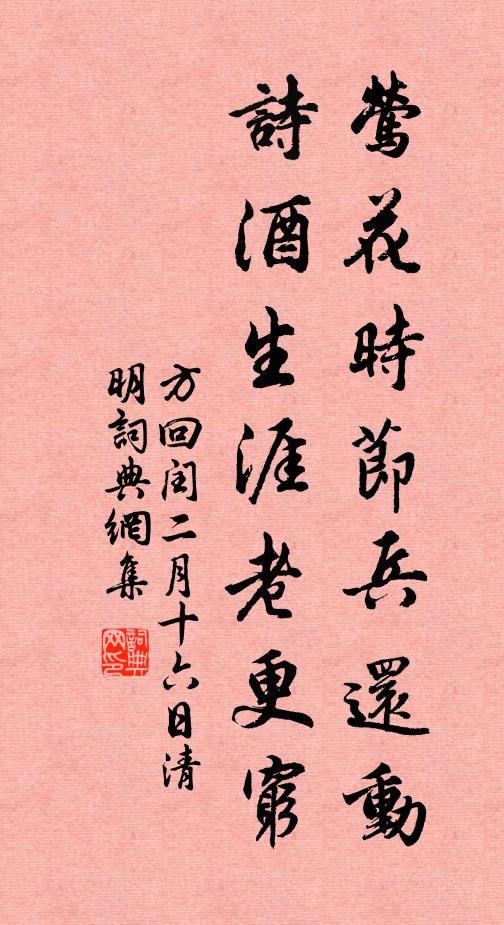 鶯花時節兵還動
詩酒生涯老更窮
方回閏二月十六日清
明詞典網集
詞典
网印